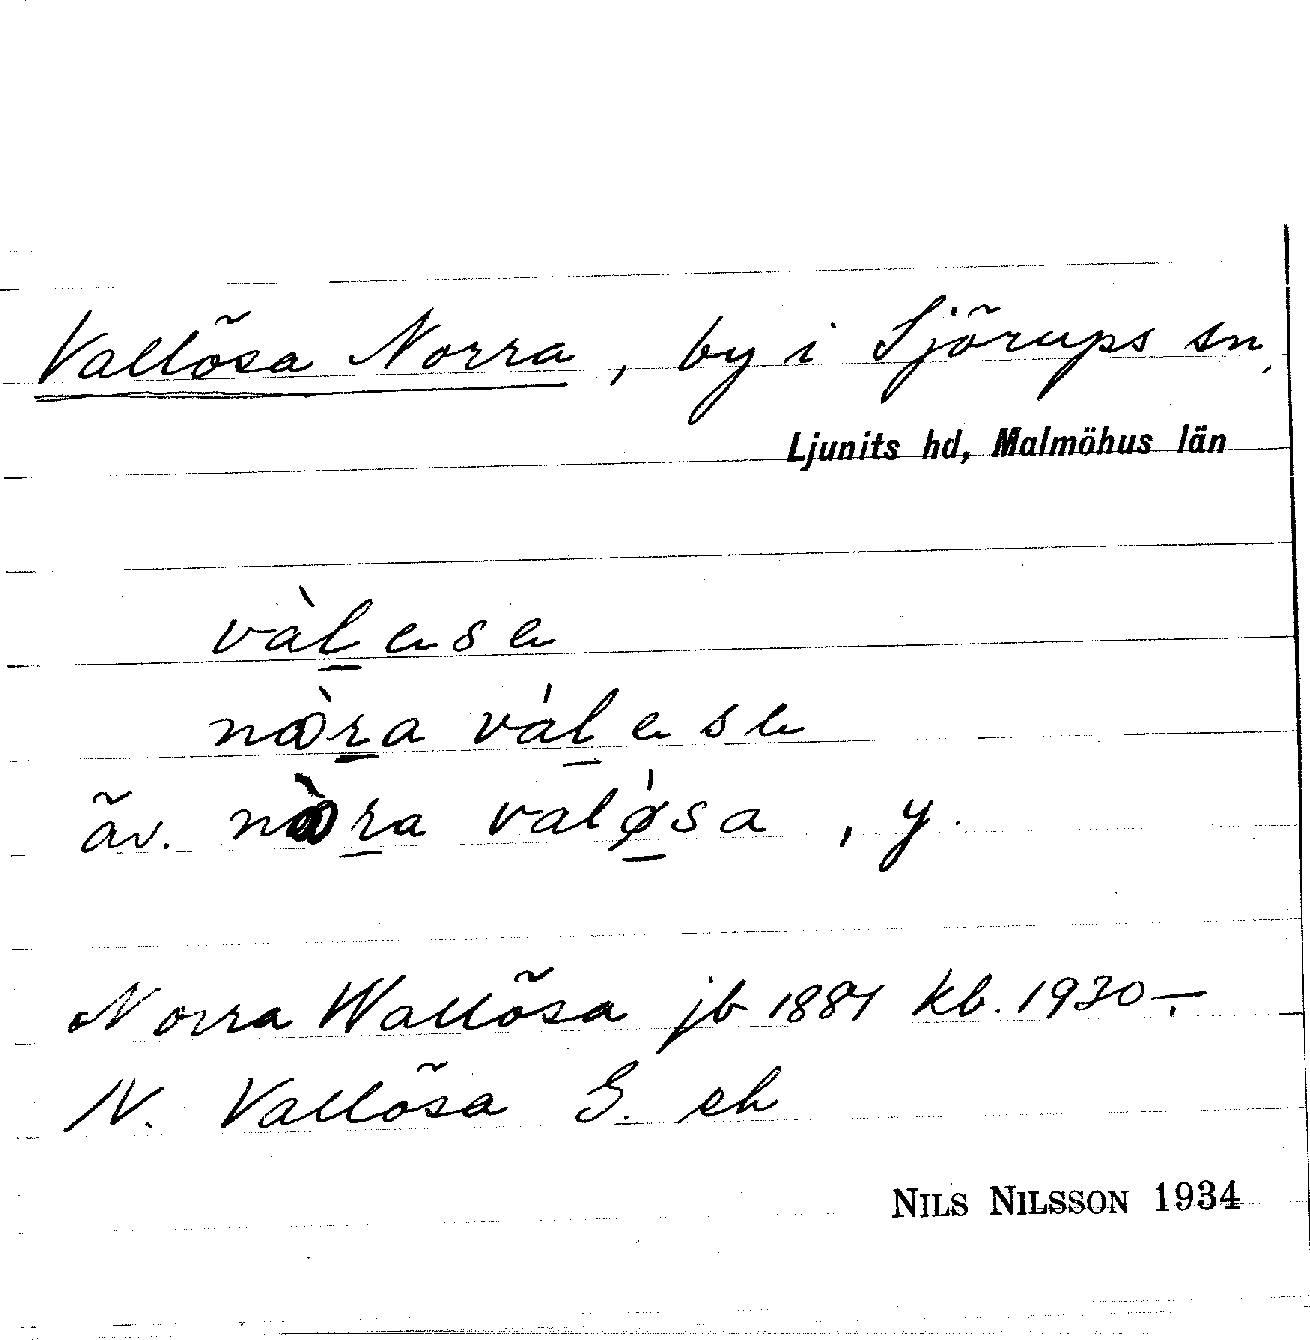 Vallösa Norra, by i Sjörups sn,
Ljunits hd, Malmöhus län
vàlese
nòra válese
äv. nòra valǿsa, y.
Norra Wallösa jb 1881 kb. 1930 –.
N. Vallösa G. ek
NILS NILSSON 1934